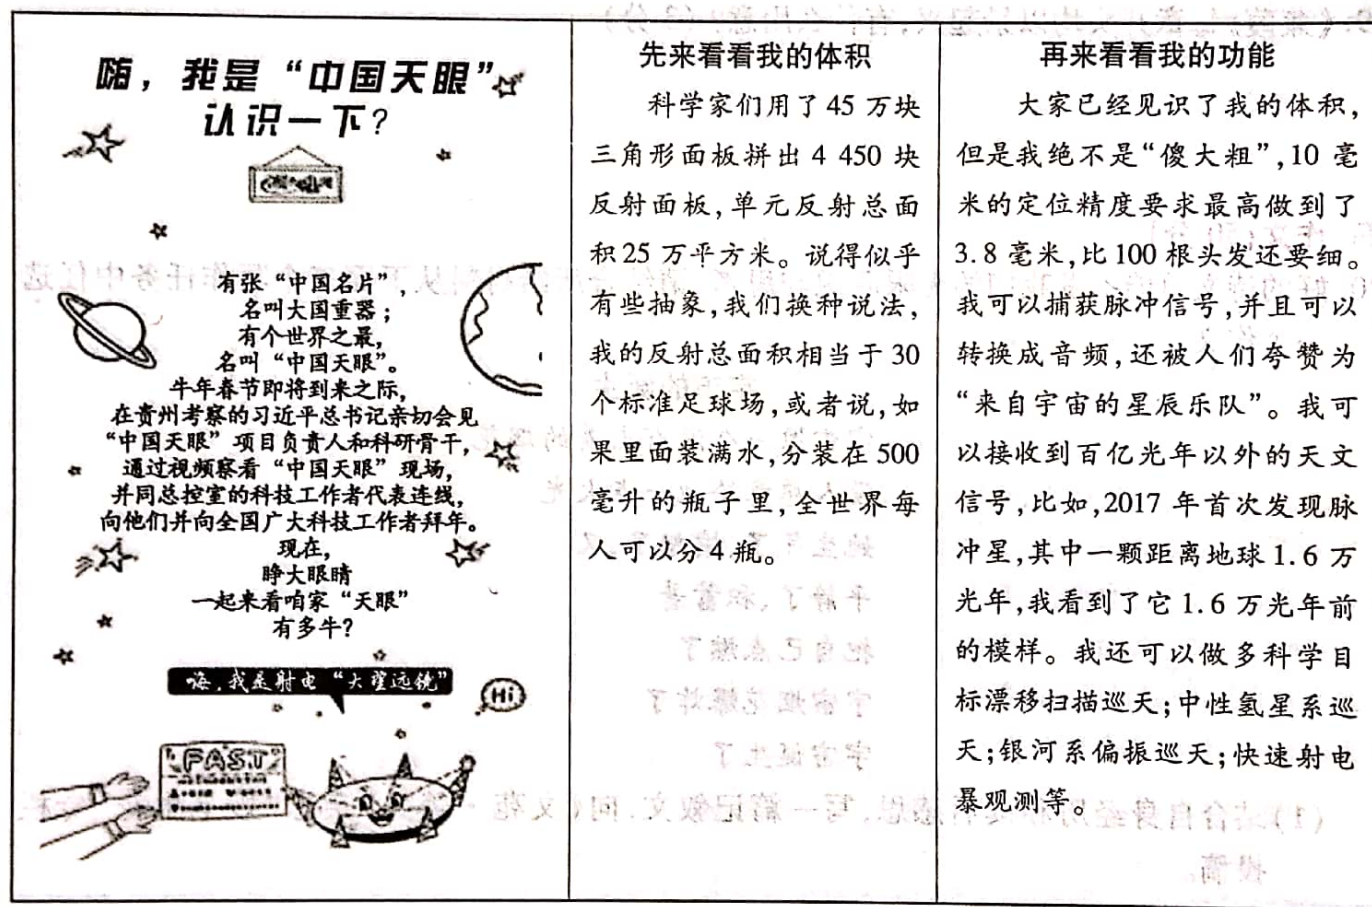 嗨，我是“中国天眼”
认识一下？
有张“中国名片”，
名叫大国重器；
有个世界之最，
名叫“中国天眼”。
牛年春节即将到来之际，
在贵州考察的习近平总书记亲切会见
“中国天眼”项目负责人和科研骨干，
通过视频察看“中国天眼”现场，
并同总控室的科技工作者代表连线，
向他们并向全国广大科技工作者拜年。
现在，
睁大眼睛
一起来看咱家“天眼”
有多牛？
嗨，我是射电“大望远镜”
Hi
FAST
先来看看我的体积
科学家们用了45万块
三角形面板拼出4 450块
反射面板，单元反射总面
积25万平方米。说得似乎
有些抽象，我们换种说法，
我的反射总面积相当于30
个标准足球场，或者说，如
果里面装满水，分装在500
毫升的瓶子里，全世界每
人可以分4瓶。
再来看看我的功能
大家已经见识了我的体积，
但是我绝不是“傻大粗”，10毫
米的定位精度要求最高做到了
3.8毫米，比100根头发还要细。
我可以捕获脉冲信号，并且可以
转换成音频，还被人们夸赞为
“来自宇宙的星辰乐队”。我可
以接收到百亿光年以外的天文
信号，比如，2017年首次发现脉
冲星，其中一颗距离地球1.6万
光年，我看到了它1.6万光年前
的模样。我还可以做多科学目
标漂移扫描巡天；中性氢星系巡
天；银河系偏振巡天；快速射电
暴观测等。